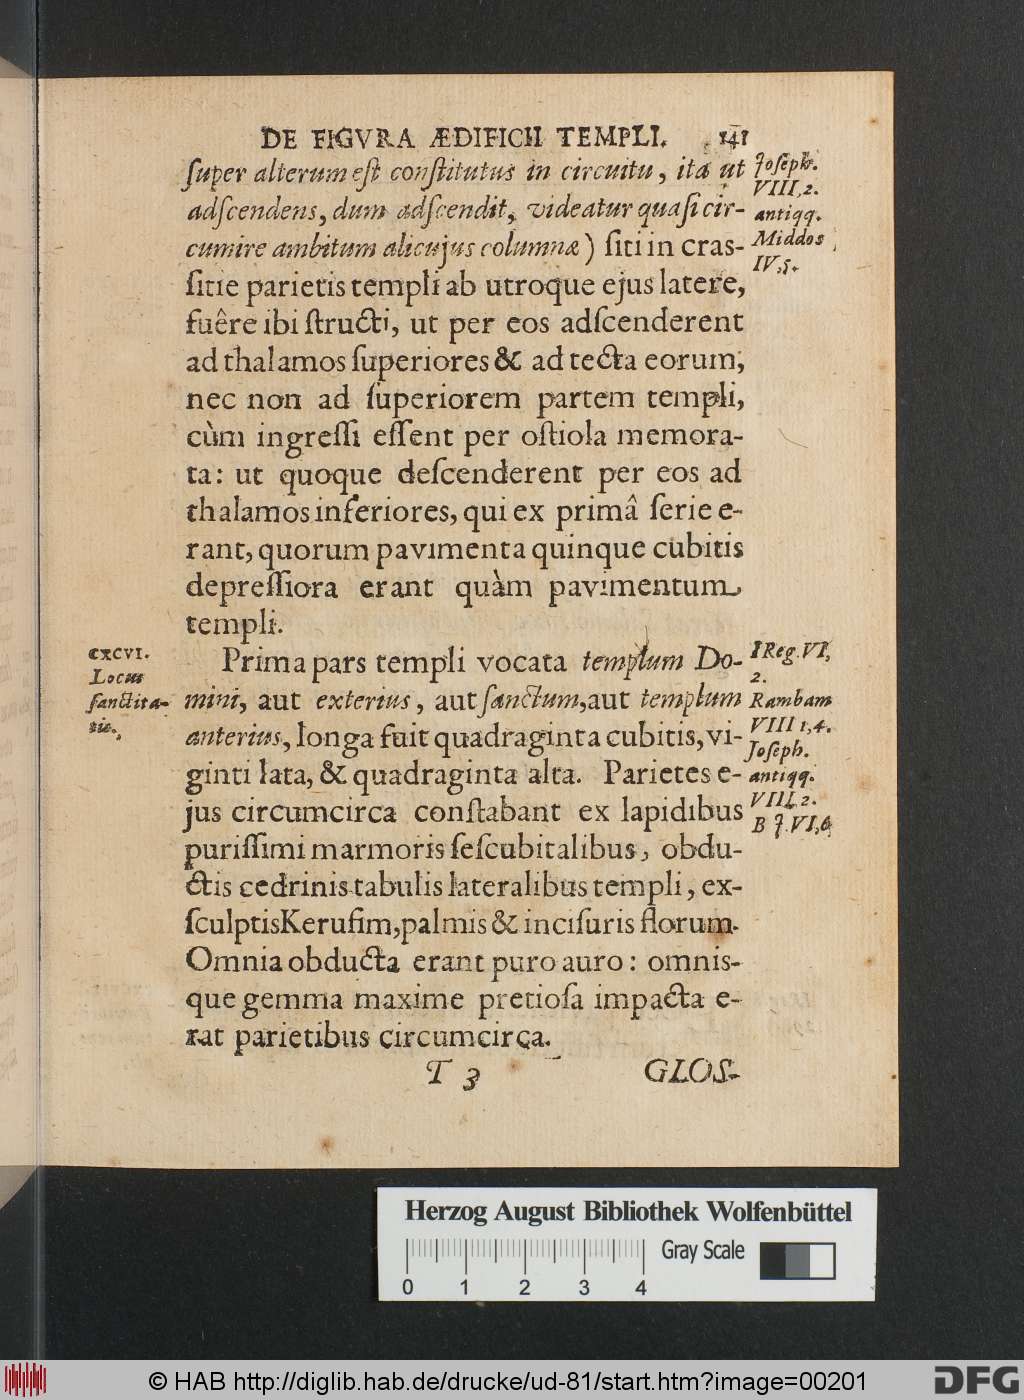 DE FIGVRA ÆDIFICII TEMPLI. 141
ſuper alterum eſt conſtitutus in circuitu, ita ut
adſcendens, dum adſcendit, videatur quaſi cir-
cumire ambitum alicujus columnæ) ſiti in craſ-
ſitie parietis templi ab utroque ejus latere,
fuêre ibi ſtructi, ut per eos adſcenderent
ad thalamos ſuperiores & ad tecta eorum,
nec non ad ſuperiorem partem templi,
cùm ingreſſi eſſent per oſtiola memora-
ta: ut quoque deſcenderent per eos ad
thalamos inferiores, qui ex primâ ſerie e-
rant, quorum pavimenta quinque cubitis
depreſſiora erant quàm pavimentum
templi.
Joſeph.
VIII, 2.
antiqq.
Middos
IV, 5.
CXCVI.
Locus
ſanctita-
tis.
Prima pars templi vocata templum Do-
mini, aut exterius, aut ſanctum, aut templum
anterius, longa fuit quadraginta cubitis, vi-
ginti lata, & quadraginta alta. Parietes e-
jus circumcirca conſtabant ex lapidibus
puriſſimi marmoris ſeſcubitalibus, obdu-
ctis cedrinis tabulis lateralibus templi, ex-
ſculptis Keruſim, palmis & inciſuris florum.
Omnia obducta erant puro auro: omnis-
que gemma maxime pretioſa impacta e-
rat parietibus circumcirca.
I Reg. VI,
2.
Rambam
VIII 1, 4.
Joſeph.
antiqq.
VIII, 2.
B J. VI, 6
T 3 GLOS-
Herzog August Bibliothek Wolfenbüttel
Gray Scale
0 1 2 3 4
© HAB http://diglib.hab.de/drucke/ud-81/start.htm?image=00201
DFG